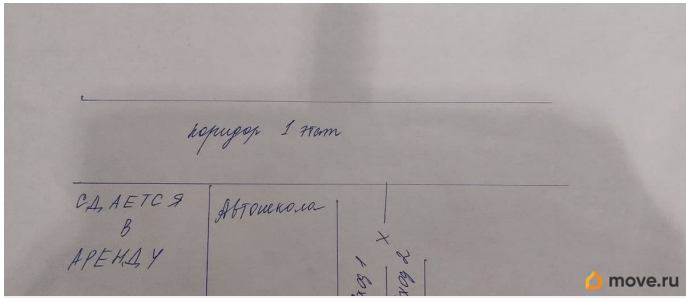 коридор 1 этаж
СДАЕТСЯ
В
АРЕНДУ
Автошкола
ход 1
ход 2
move.ru